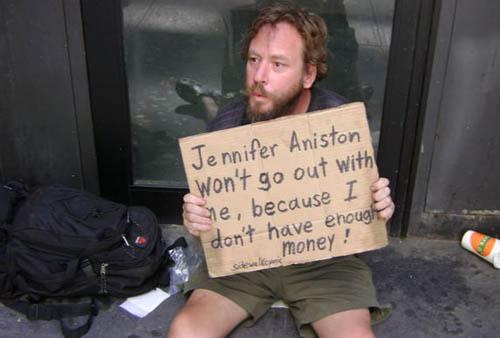 Jennifer Aniston
won't go out with
me, because I
don't have enough
money!